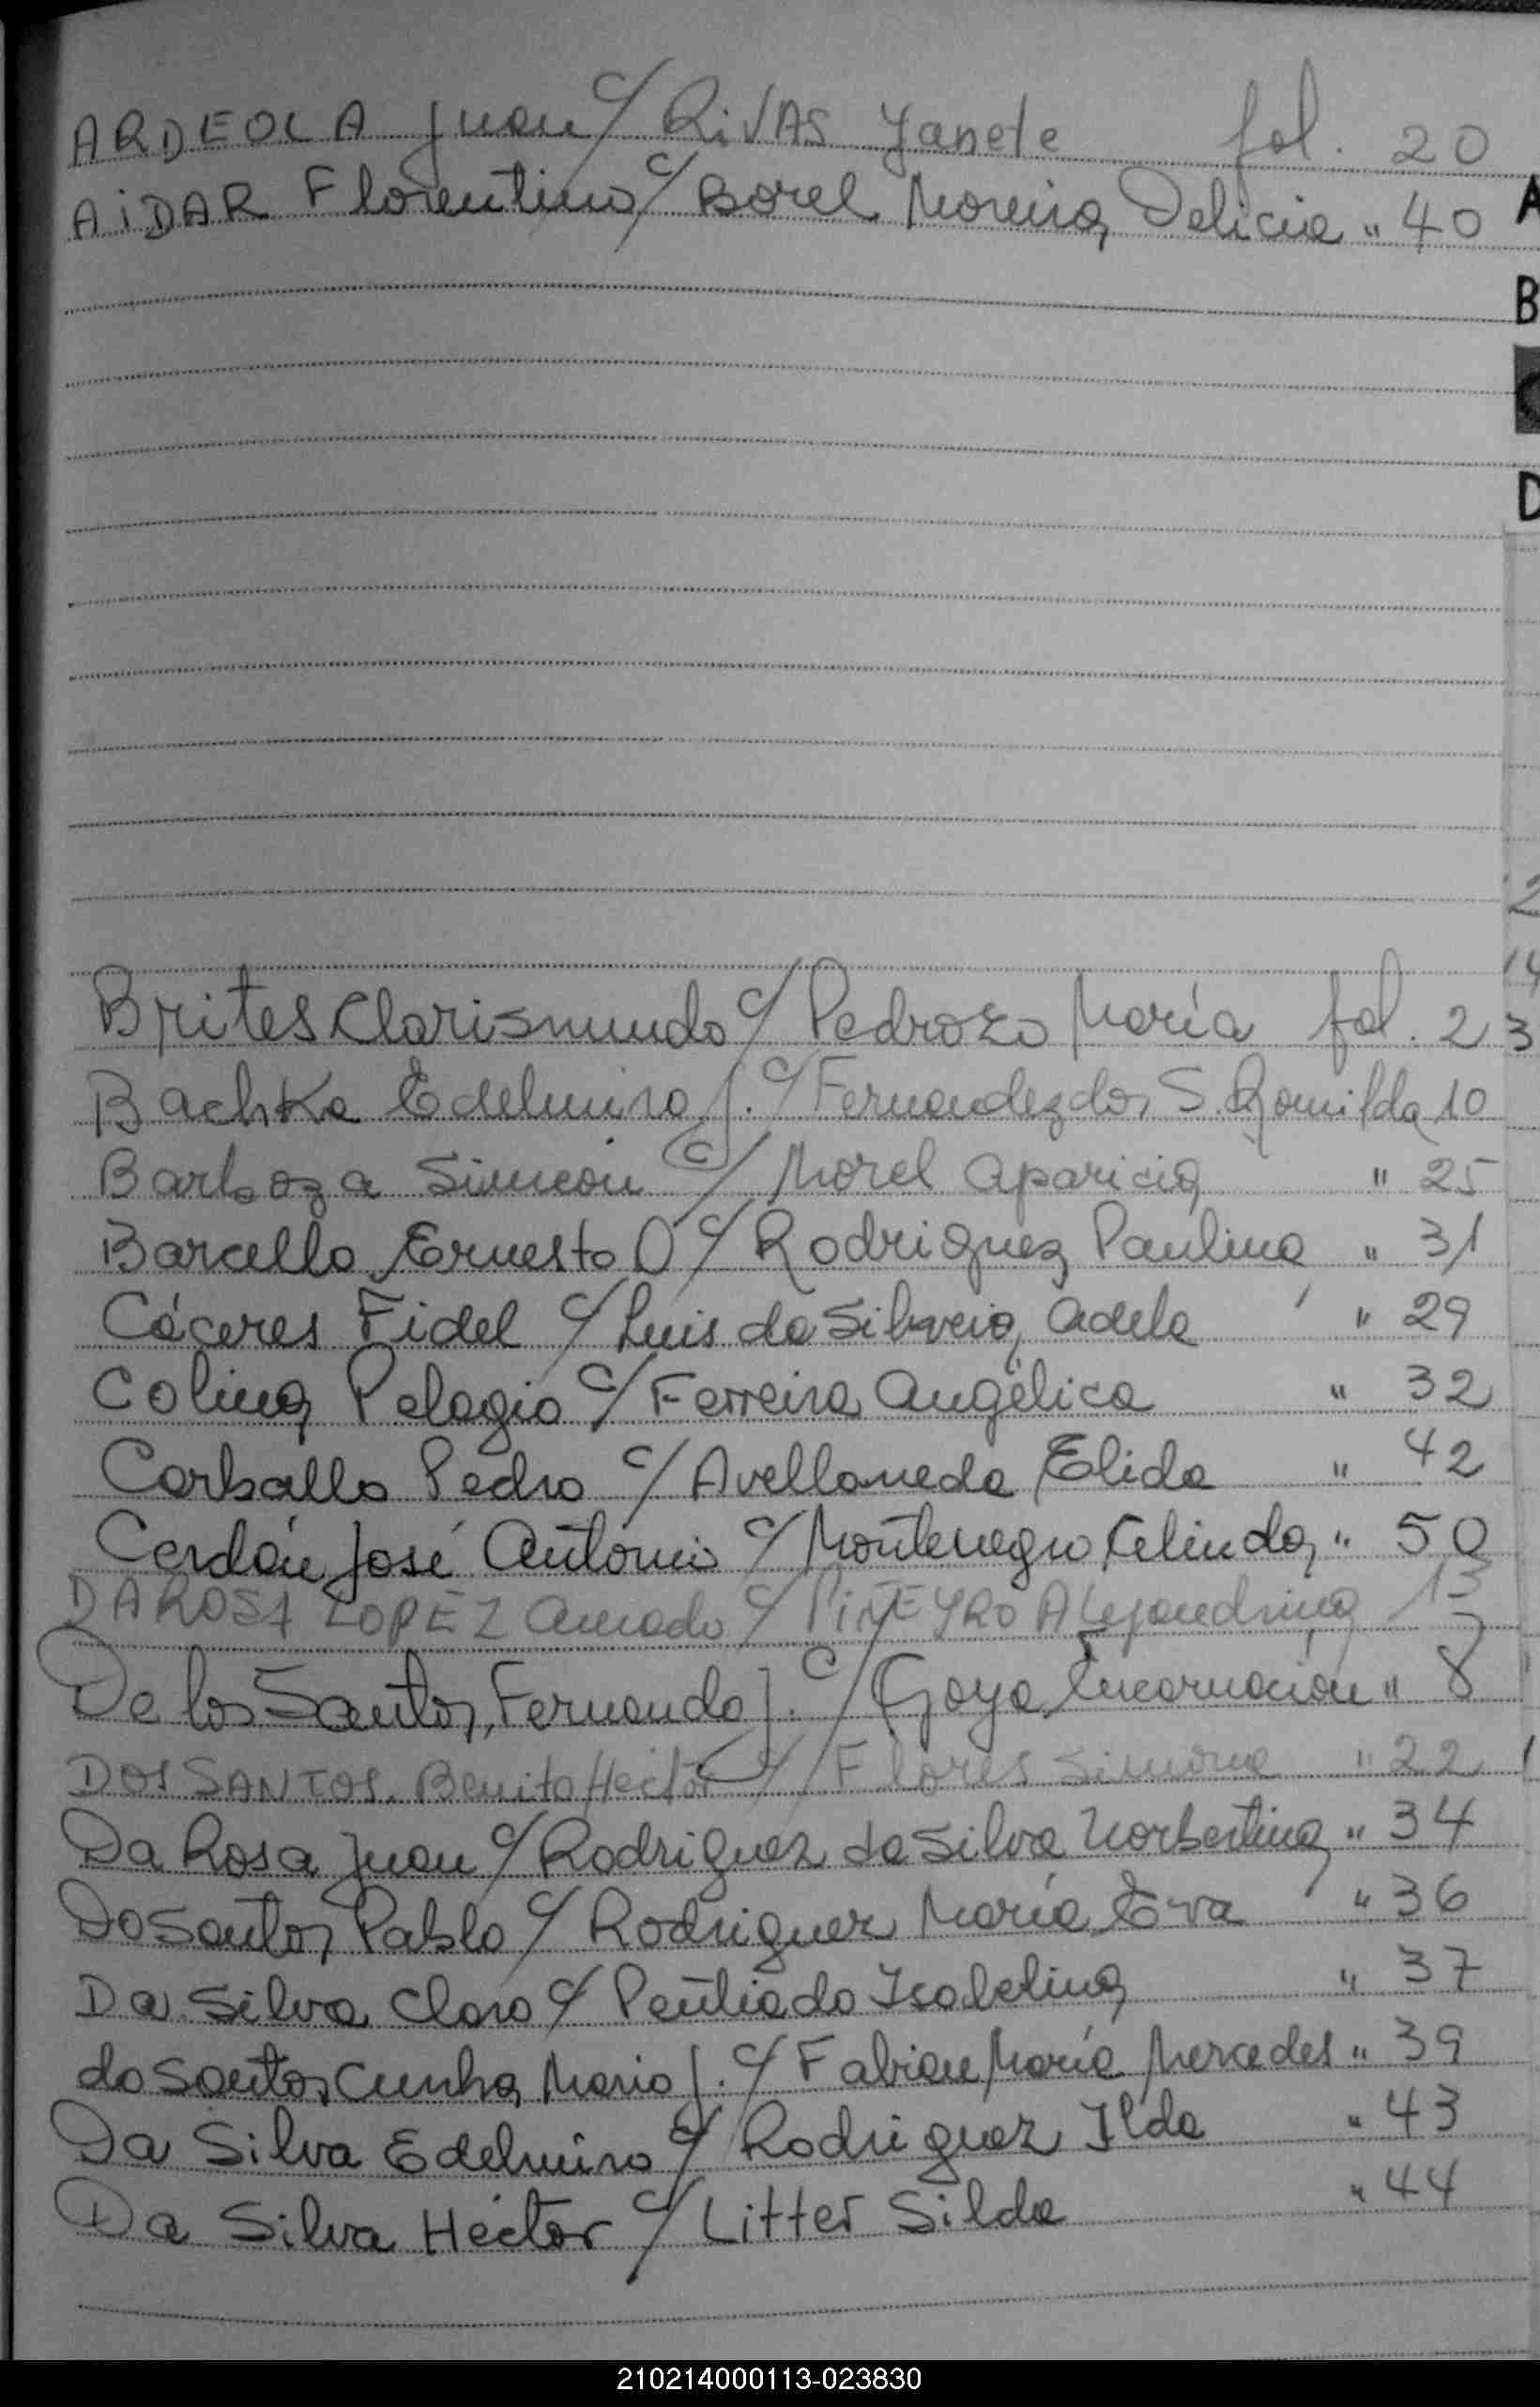 ARDEOLA Juan c/ RiVAS Yanete fol. 20
AiDAR Florentino c/ Borel Moreira Delicia " 40
A
B
C
D
Brites Clarismundo c/ Pedrozo María fol. 23
Bachka Edelmiro J. c/ Fernandez dos S. Romilda 10
Barboza Simeon c/ Morel Aparicia " 25
Barcello Ernesto O c/ Rodriguez Paulina " 31
Cáceres Fidel c/ Luis da Silveira Adela " 29
Colina Pelagio c/ Ferreira Angélica " 32
Carballo Pedro c/ Avellaneda Elida " 42
Cerdán José Antonio c/ Montenegro Celinda " 50
DA ROSA LOPEZ Amado c/ PiÑEYRO Alejandrina 13
De los Santos, Fernando J. c/ Goya Encarnación " 8
DOS SANTOS. Benito Hector c/ Flores Simona " 22
Da Rosa Juan c/ Rodriguez da Silva Norbertina " 34
Do Santos Pablo c/ Rodriguez María Eva " 36
Da Silva Claro c/ Pentiado Isabelina " 37
do Santos Cunha Mario J. c/ Fabian María Mercedes " 39
Da Silva Edelmiro c/ Rodriguez Ilda " 43
Da Silva Héctor c/ Litter Silda " 44
210214000113-023830